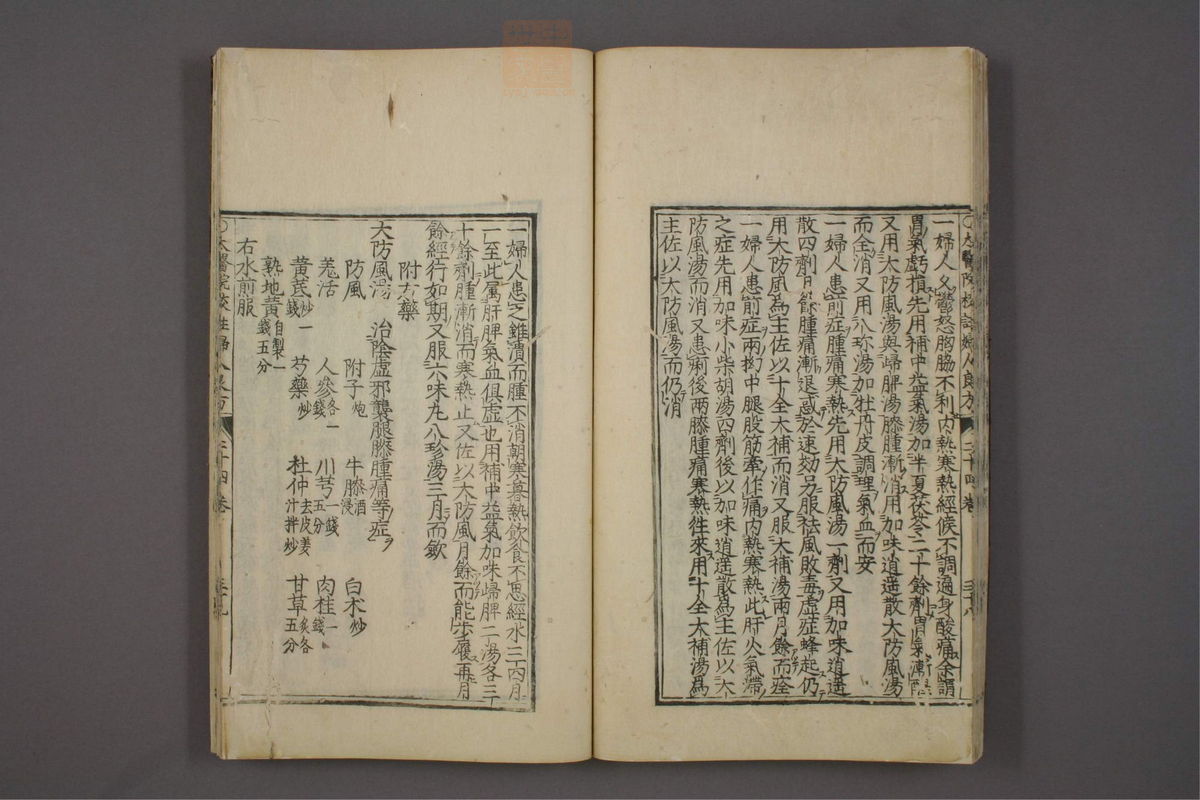 〇太醫院校註婦人良方 二十四卷 三十八
一婦人久鬱怒胸脇不利内熱寒熱經候不調遍身酸痛余謂
胃氣虧損先用補中益氣湯加半夏茯苓二十餘劑胃氣漸醒
又用大防風湯與歸脾湯膝腫漸消用加味逍遥散大防風湯
而全消又用八珍湯加牡丹皮調理氣血而安
一婦人患前症腫痛寒熱先用大防風湯一劑又用加味逍遥
散四劑月餘腫痛漸退惑於速効另服祛風敗毒虚症蜂起仍
用大防風爲主佐以十全大補而消又服大補湯兩月餘而痊
一婦人患前症兩拗中腿股筋牽作痛内熱寒熱此肝火氣滯
之症先用加味小柴胡湯四劑後以加味逍遥散爲主佐以大
防風湯而消又患痢後兩膝腫痛寒熱徃來用十全大補湯爲
主佐以大防風湯而仍消
一婦人患之雖潰而腫不消朝寒暮熱飲食不思經水三四月
一至此屬肝脾氣血俱虚也用補中益氣加味歸脾二湯各三
十餘劑腫漸消而寒熱止又佐以大防風月餘而能步履再月
餘經行如期又服六味丸八珍湯三月而斂
附方藥
大防風湯 治陰虚邪襲腿膝腫痛等症
防風 附子炮 牛膝酒浸 白朮炒
羗活 人參各一錢 川芎一錢五分 肉桂一錢
黄芪炒一錢 芍藥炒 杜仲去皮姜汁拌炒 甘草炙各五分
熟地黄自製一錢五分
右水煎服
〇太醫院校註婦人良方 二十四卷 三十九